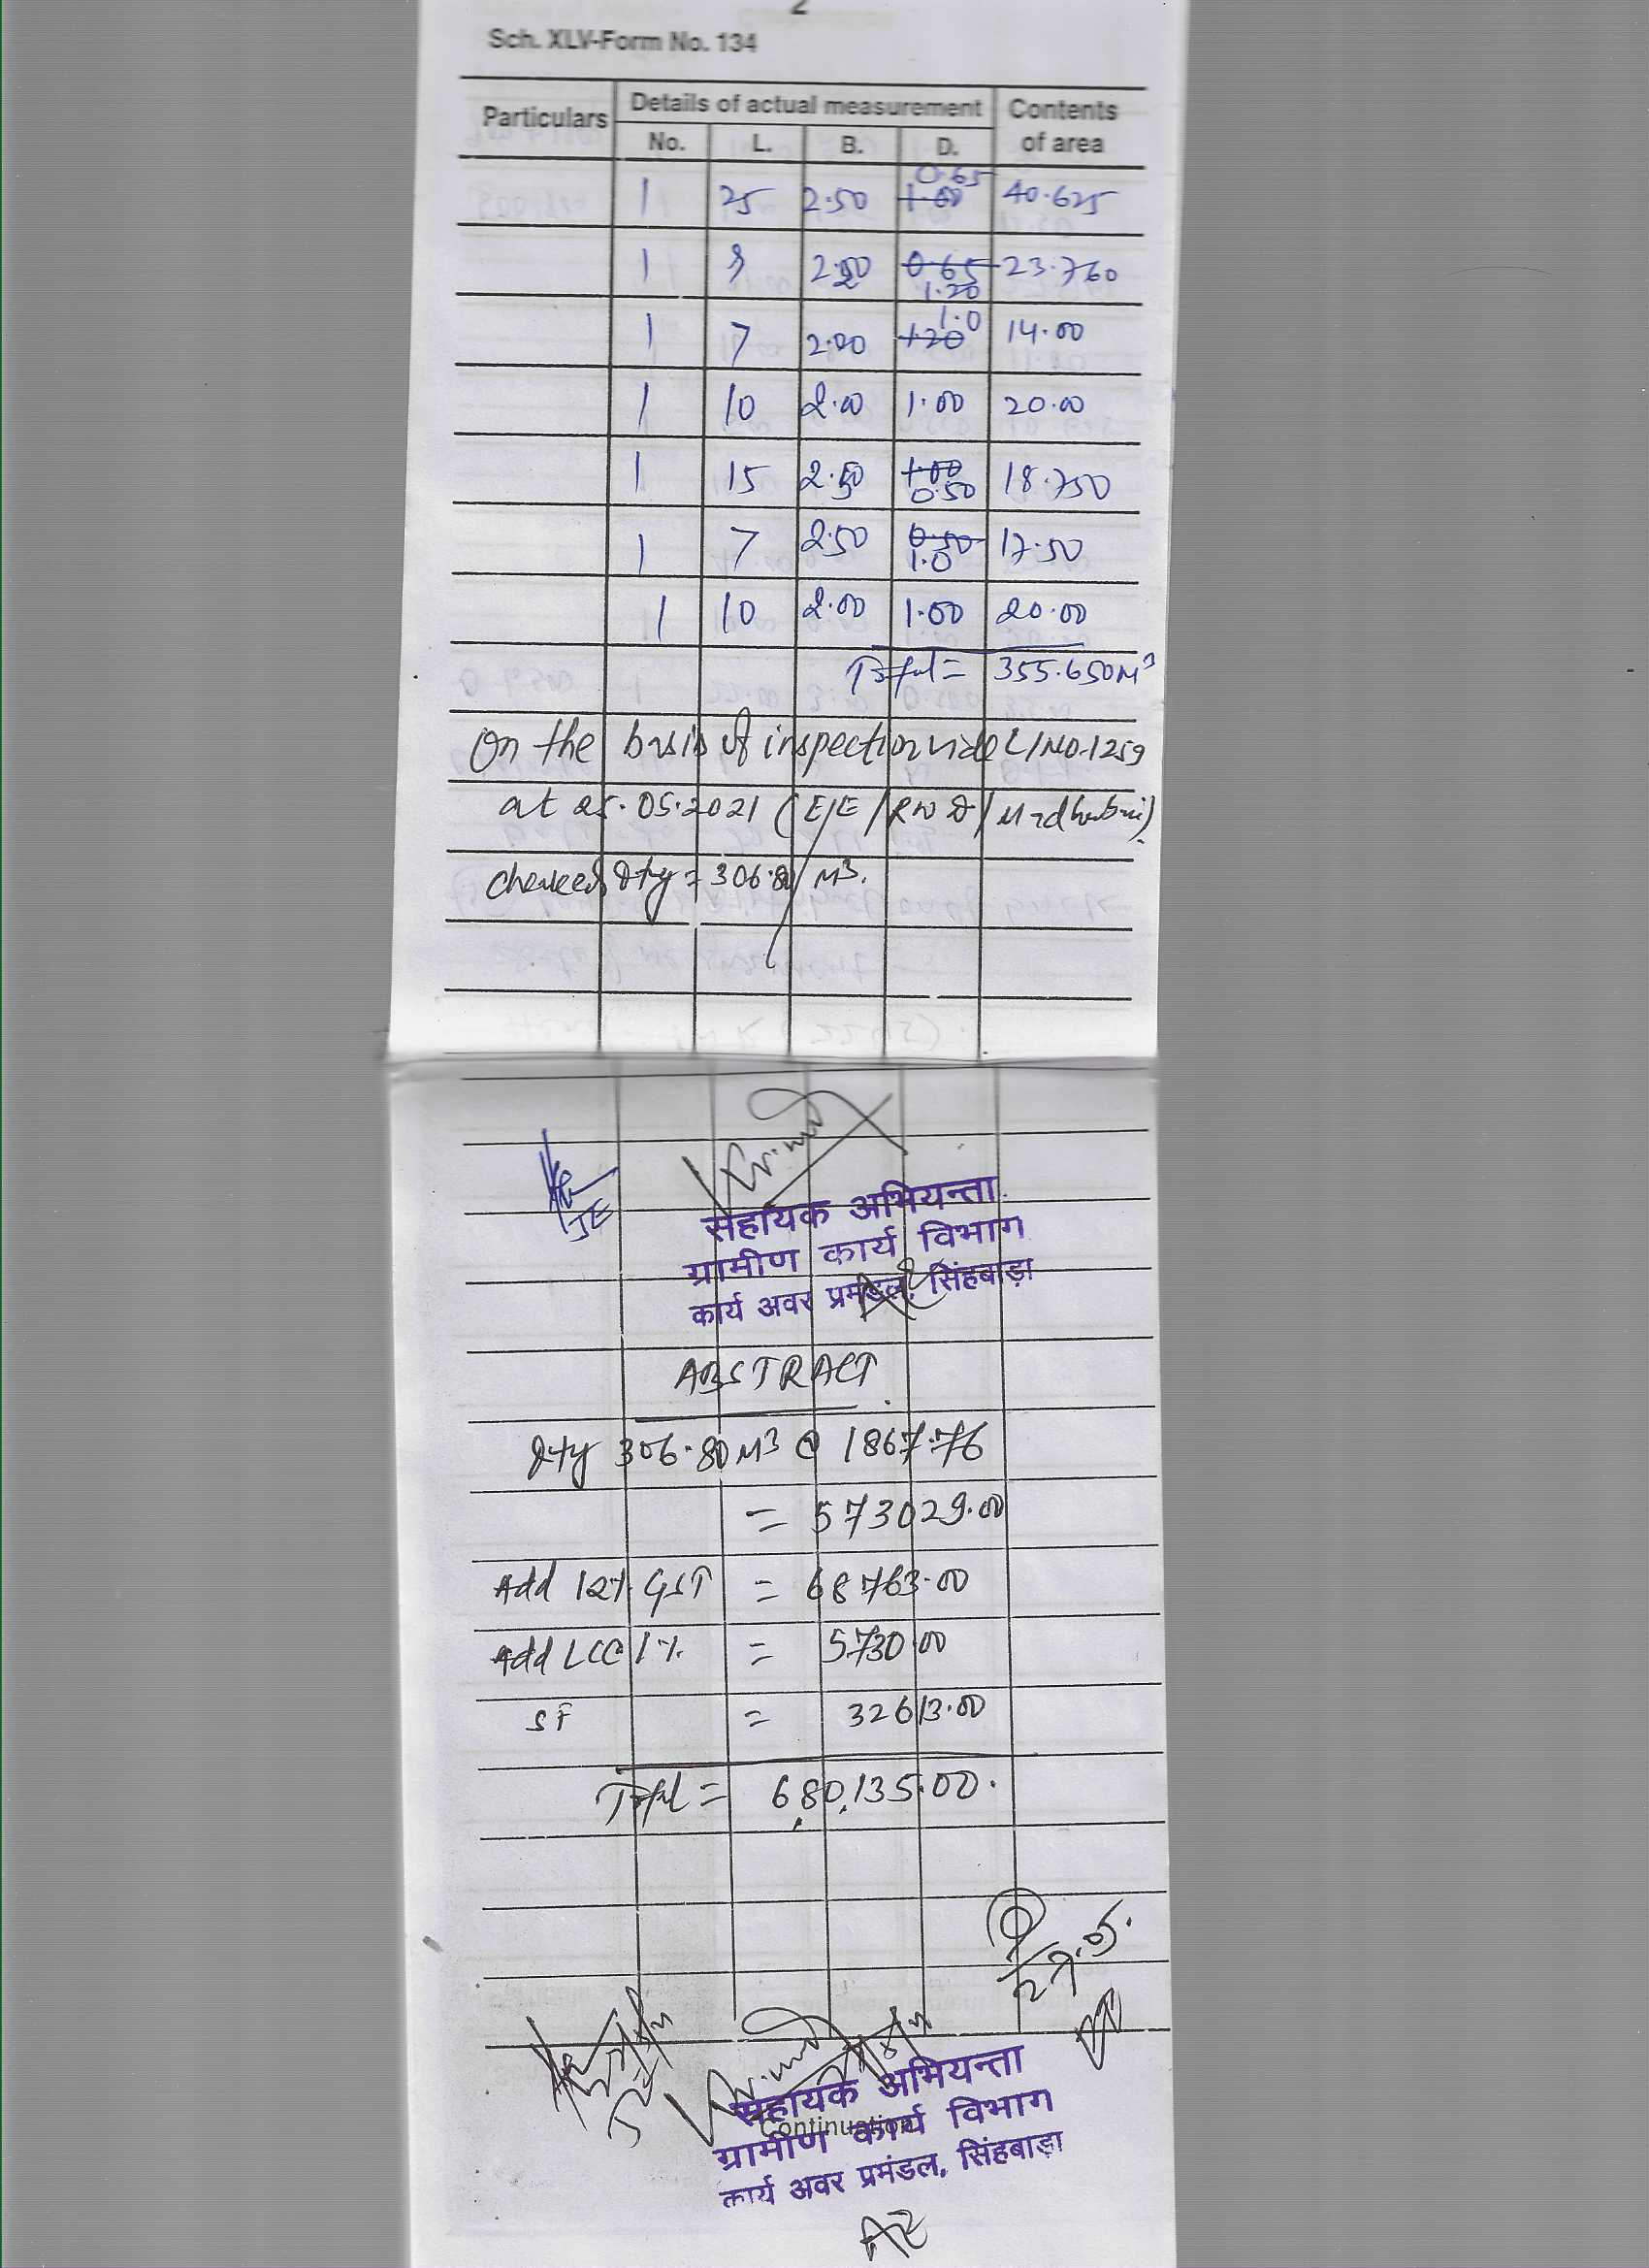 2
Sch. XLV-Form No. 134
Particulars Details of actual measurement Contents of area
No. L. B. D.
1 25 2.50 1.00 0.65 40.625
1 9 2.20 0.65 1.20 23.760
1 7 2.00 1.20 1.0 14.00
1 10 2.00 1.00 20.00
1 15 2.50 1.00 0.50 18.750
1 7 2.50 0.50 1.0 17.50
1 10 2.00 1.00 20.00
Total = 355.650 M³
On the basis of inspection vide L/NO.1259
at 25.05.2021 (E/E/RWD/Madhubani)
checked Qty = 306.80 M³.
JE
सहायक अभियन्ता
ग्रामीण कार्य विभाग
कार्य अवर प्रमंडल, सिंहबाड़ा
ABSTRACT
Qty 306.80 M³ @ 1867.76
= 573029.00
Add 12% GST = 68763.00
Add LCC 1% = 5730.00
SF = 32613.00
Total = 680,135.00.
27.05.
सहायक अभियन्ता
Continuation
ग्रामीण कार्य विभाग
कार्य अवर प्रमंडल, सिंहबाड़ा
AE